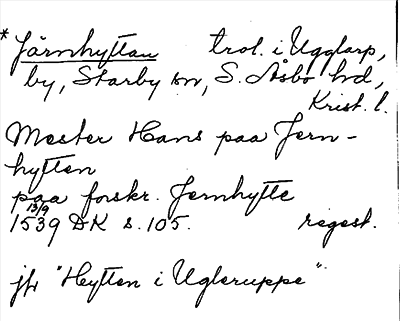 * Järnhyttan trol. i Ugglarp,
by, Starby sn, S. Åsbo hd,
Krist. l.
Mester Hans paa Jern-
hytten
paa forskr. Jernhytte
13/9
1539 DK s. 105. regest.
jfr "Hytten i Ugleruppe"